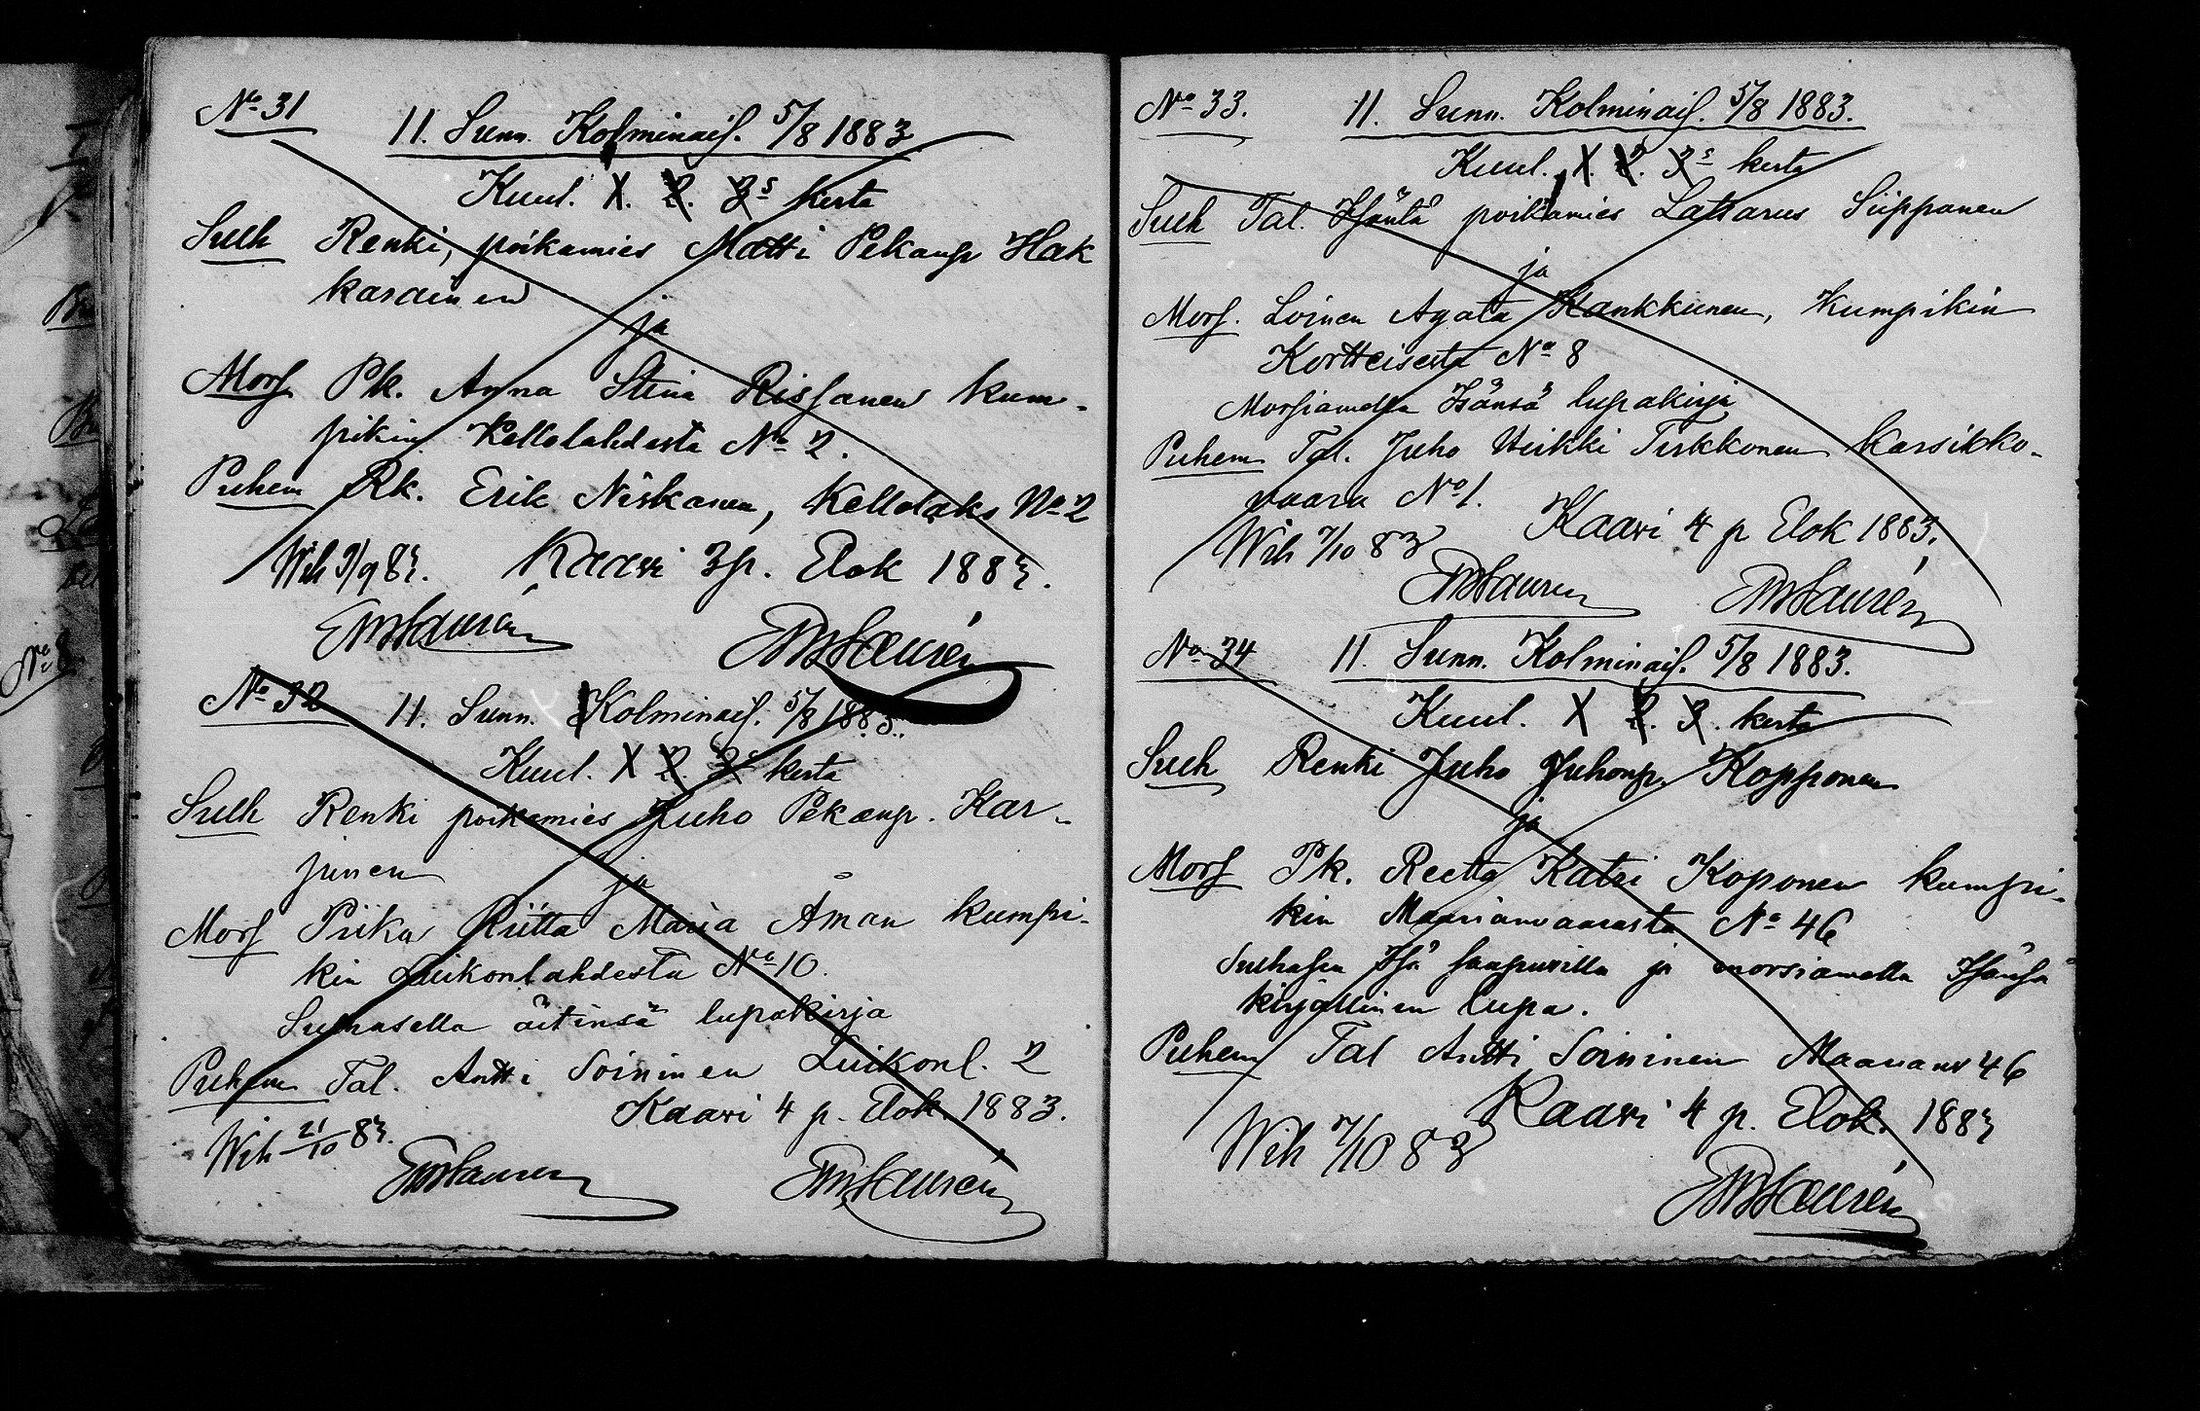 No 31
11. Sunn. Kolminais. 5/8 1883
Kuul. X. 2. 3s kerta
Sulh Renki, poikamies Matti Pekanp Hak
karainen
ja
Mors Pk. Anna Stina Rissanen kum-
pikin Kellolahdesta No 2.
Puhem Rk. Erik Niskanen, Kellolaks No 2
Wih 9/9 83. Kaavi 3 p. Elok 1883.
No 32
11. Sunn. Kolminais. 5/8 1883.
Kuul. X 2. 3 kerta
Sulh Renki poikamies Juho Pekanp. Kar-
junen
ja
Mors Piika Riitta Maria Åman kumpi-
kin Luikonlahdesta No 10.
Sulhasella äitinsä lupakirja
Puhem Tal. Antti Soininen Luikonl. 2
Kaavi 4 p. Elok. 1883.
Wih 21/10 83.
No 33.
11. Sunn. Kolminais. 5/8 1883.
Kuul. X. 2. 3s kerta
Sulh Tal. Isäntä poikamies Latsarus Siippanen
ja
Mors. Loinen Agata Kankkunen, kumpikin
Kortteisesta No 8
Morsiamella Isänsä lupakirja
Puhem Tal. Juho Heikki Tirkkonen Karsikko-
vaara No 1.
Kaavi 4 p Elok 1883.
Wih 7/10 83
No 34
11. Sunn. Kolminais. 5/8 1883.
Kuul. X 2. 3. kerta
Sulh Renki Juho Juhonp. Kopponen
ja
Mors Pk. Reetta Katri Koponen kumpi-
kin Maarianvaarasta No 46
Sulhasen Isä saapuvilla ja morsiamella Isänsä
kirjallinen lupa.
Puhem Tal Antti Soininen Maarianv 46
Kaavi 4 p. Elok. 1883
Wih 7/10 83